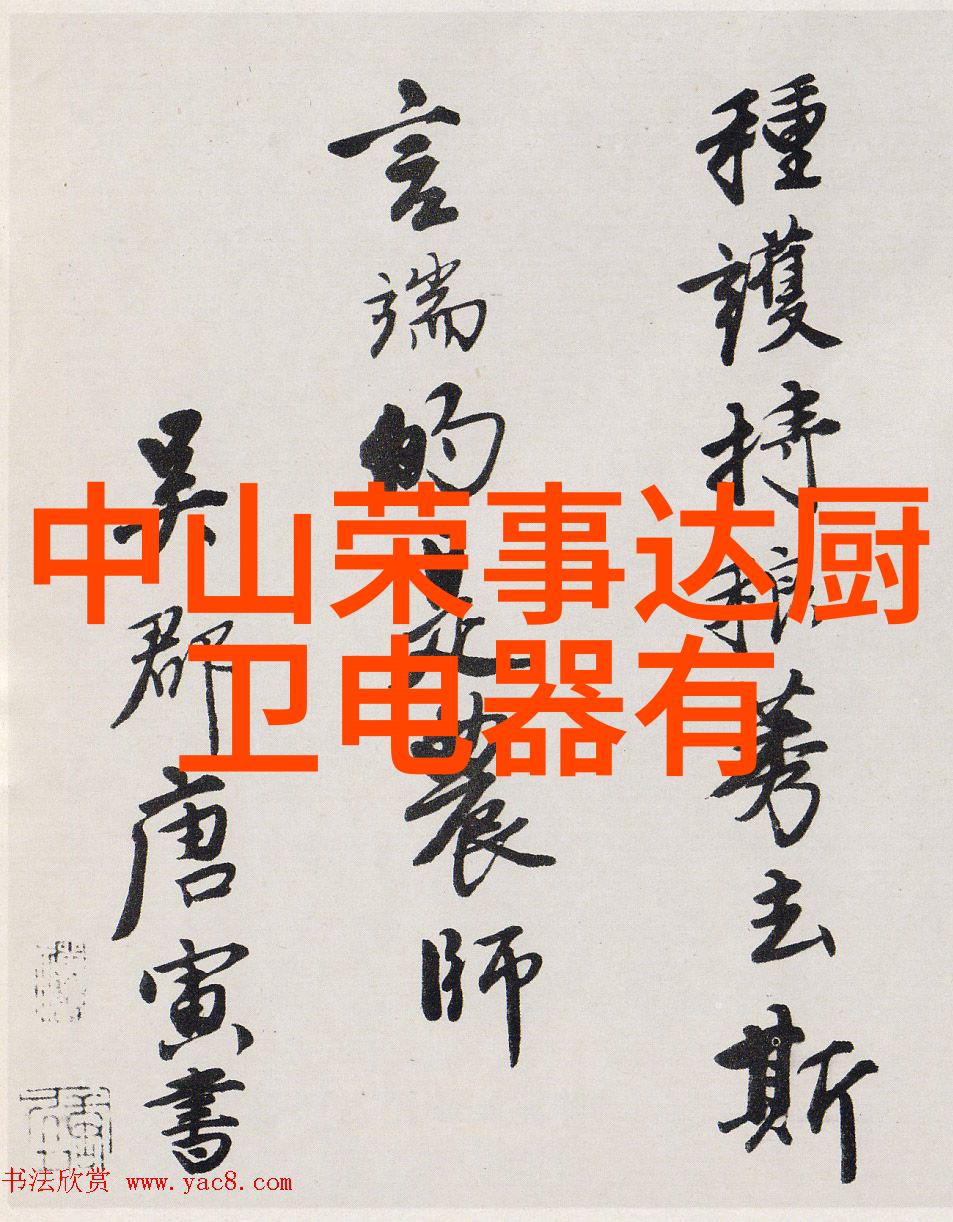 種護持稂莠去斯
言端的是農師
吳郡唐寅書
中山荣事达厨
卫电器有
书法欣赏 www.yac8.com